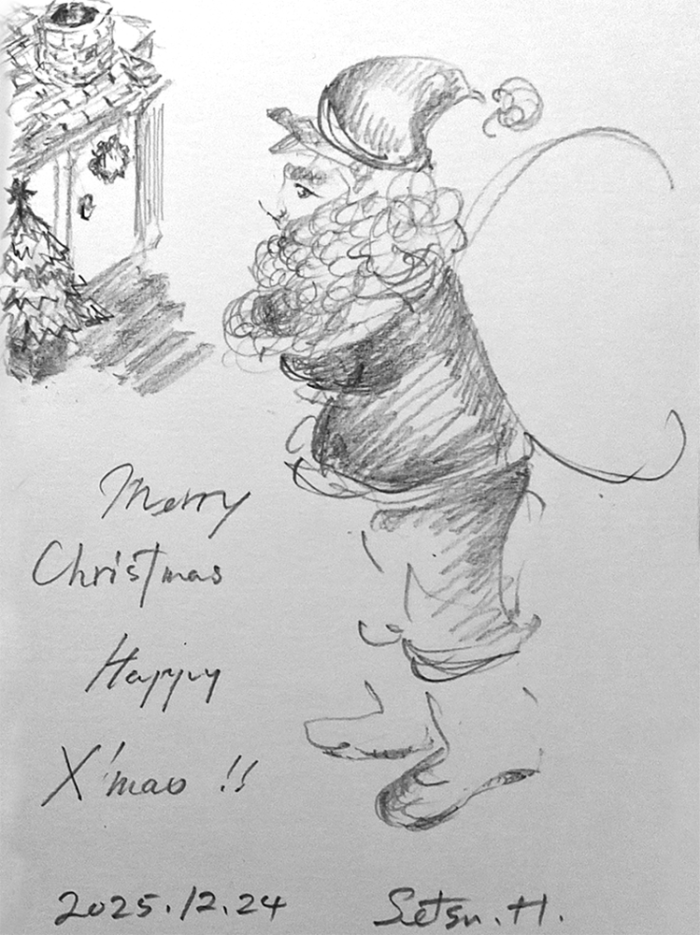 Merry
Christmas
Happy
X'mas !!
2025.12.24 Setsu.H.